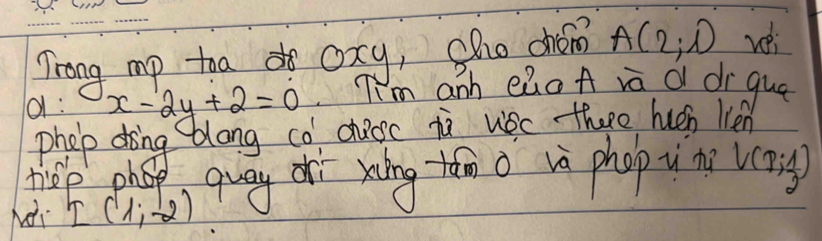 Trong mp tọa độ Oxy, Cho điểm A(2;1) với
d: x - 2y + 2 = 0. Tìm ảnh của A và d di qua
phép đồng dang có được từ việc thực hiện liên
tiếp phép quay đối xứng tâm O và phép vị tự V(I;1/2)
với I (1;-2).